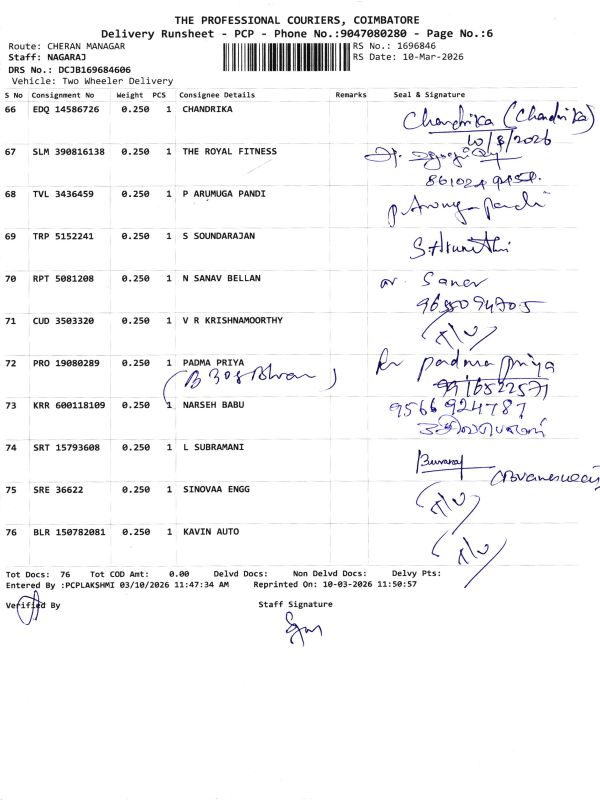 THE PROFESSIONAL COURIERS, COIMBATORE
Delivery Runsheet - PCP - Phone No.:9047080280 - Page No.:6
Route: CHERAN MANAGAR
RS No.: 1696846
Staff: NAGARAJ
RS Date: 10-Mar-2026
DRS No.: DCJB169684606
Vehicle: Two Wheeler Delivery
S No Consignment No Weight PCS Consignee Details Remarks Seal & Signature
66 EDQ 14586726 0.250 1 CHANDRIKA Chandrika (Chandrika)
10/3/2026
67 SLM 390816138 0.250 1 THE ROYAL FITNESS
68 TVL 3436459 0.250 1 P ARUMUGA PANDI
69 TRP 5152241 0.250 1 S SOUNDARAJAN
70 RPT 5081208 0.250 1 N SANAV BELLAN Sanav
71 CUD 3503320 0.250 1 V R KRISHNAMOORTHY
72 PRO 19080289 0.250 1 PADMA PRIYA padma priya
9916522571
73 KRR 600118109 0.250 1 NARSEH BABU 9566924787
74 SRT 15793608 0.250 1 L SUBRAMANI
75 SRE 36622 0.250 1 SINOVAA ENGG
76 BLR 150782081 0.250 1 KAVIN AUTO
Tot Docs: 76 Tot COD Amt: 0.00 Delvd Docs: Non Delvd Docs: Delvy Pts:
Entered By :PCPLAKSHMI 03/10/2026 11:47:34 AM Reprinted On: 10-03-2026 11:50:57
Verified By Staff Signature